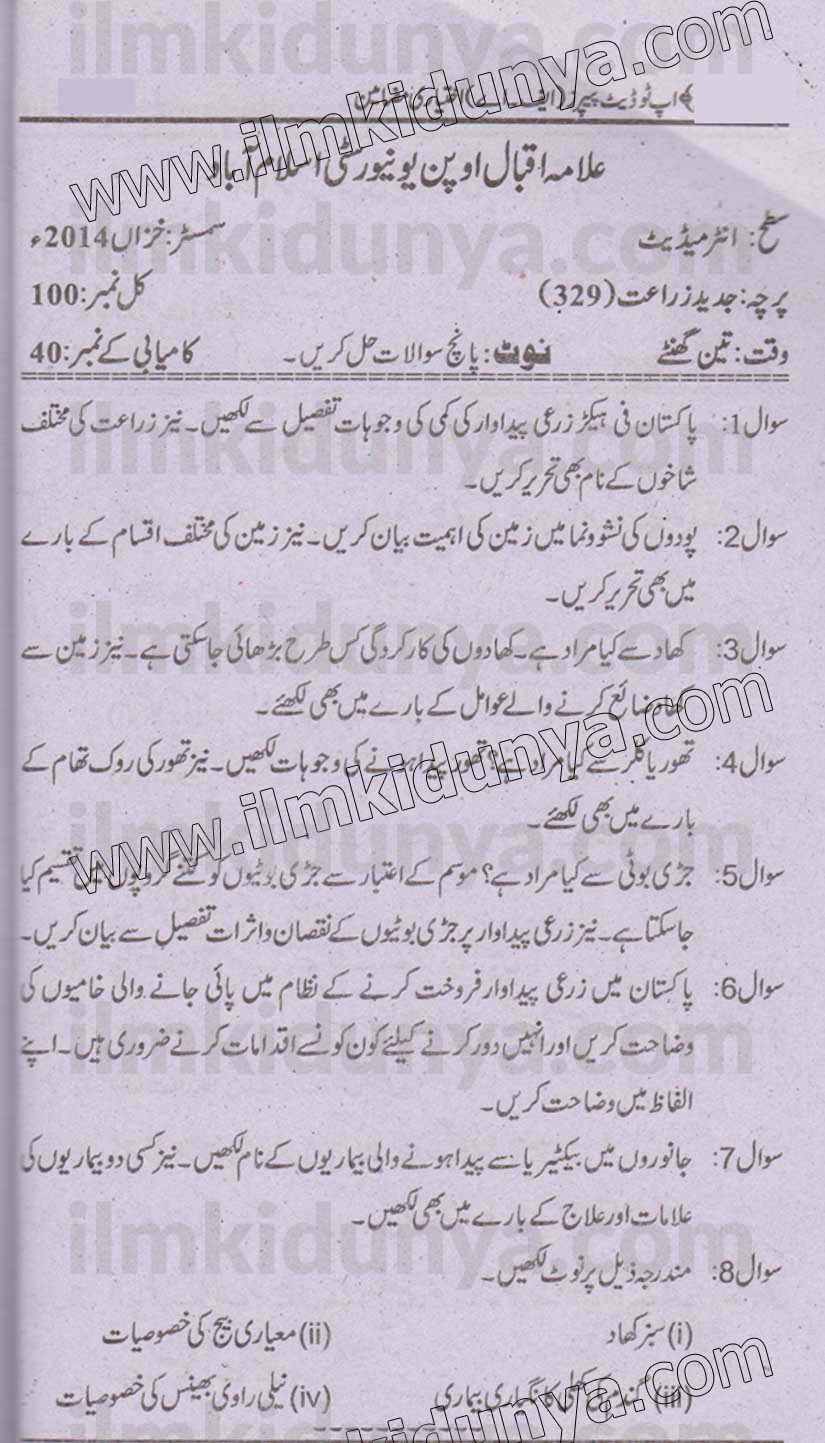 ilmkidunya.com
www.ilmkidunya.com
اپ ٹو ڈیٹ پیپرز (ایف۔ اے) اختیاری مضامین
علامہ اقبال اوپن یونیورسٹی اسلام آباد
سطح: انٹرمیڈیٹ سمسٹر: خزاں 2014ء
ilmkidunya.com
پرچہ: جدید زراعت (329) کل نمبر: 100
وقت: تین گھنٹے نوٹ: پانچ سوالات حل کریں۔ کامیابی کے نمبر: 40
سوال 1: پاکستان فی ہیکڑ زرعی پیداوار کی کمی کی وجوہات تفصیل سے لکھیں۔ نیز زراعت کی مختلف
ilmkidunya.com
شاخوں کے نام بھی تحریر کریں۔
سوال 2: پودوں کی نشوونما میں زمین کی اہمیت بیان کریں۔ نیز زمین کی مختلف اقسام کے بارے
میں بھی تحریر کریں۔
ilmkidunya.com
سوال 3: کھاد سے کیا مراد ہے۔ کھادوں کی کارکردگی کس طرح بڑھائی جا سکتی ہے۔ نیز زمین سے
کھاد ضائع کرنے والے عوامل کے بارے میں بھی لکھئے۔
www.ilmkidunya.com
سوال 4: تھور یا کلر سے کیا مراد ہے؟ تھور پیدا ہونے کی وجوہات لکھیں۔ نیز تھور کی روک تھام کے
بارے میں بھی لکھئے۔
ilmkidunya.com
سوال 5: جڑی بوٹی سے کیا مراد ہے؟ موسم کے اعتبار سے جڑی بوٹیوں کو کتنے گروپوں میں تقسیم کیا
جا سکتا ہے۔ نیز زرعی پیداوار پر جڑی بوٹیوں کے نقصان و اثرات تفصیل سے بیان کریں۔
سوال 6: پاکستان میں زرعی پیداوار فروخت کرنے کے نظام میں پائی جانے والی خامیوں کی
ilmkidunya.com
وضاحت کریں اور انہیں دور کرنے کیلئے کون کونسے اقدامات کرنے ضروری ہیں۔ اپنے
الفاظ میں وضاحت کریں۔
سوال 7: جانوروں میں بیکٹیریا سے پیدا ہونے والی بیماریوں کے نام لکھیں۔ نیز کسی دو بیماریوں کی
علامات اور علاج کے بارے میں بھی لکھیں۔
ilmkidunya.com
سوال 8: مندرجہ ذیل پر نوٹ لکھیں۔
(i) سبز کھاد (ii) معیاری بیج کی خصوصیات
(iii) گندم کی کھلی کانگیاری بیماری (iv) نیلی راوی بھینس کی خصوصیات
kidunya.com